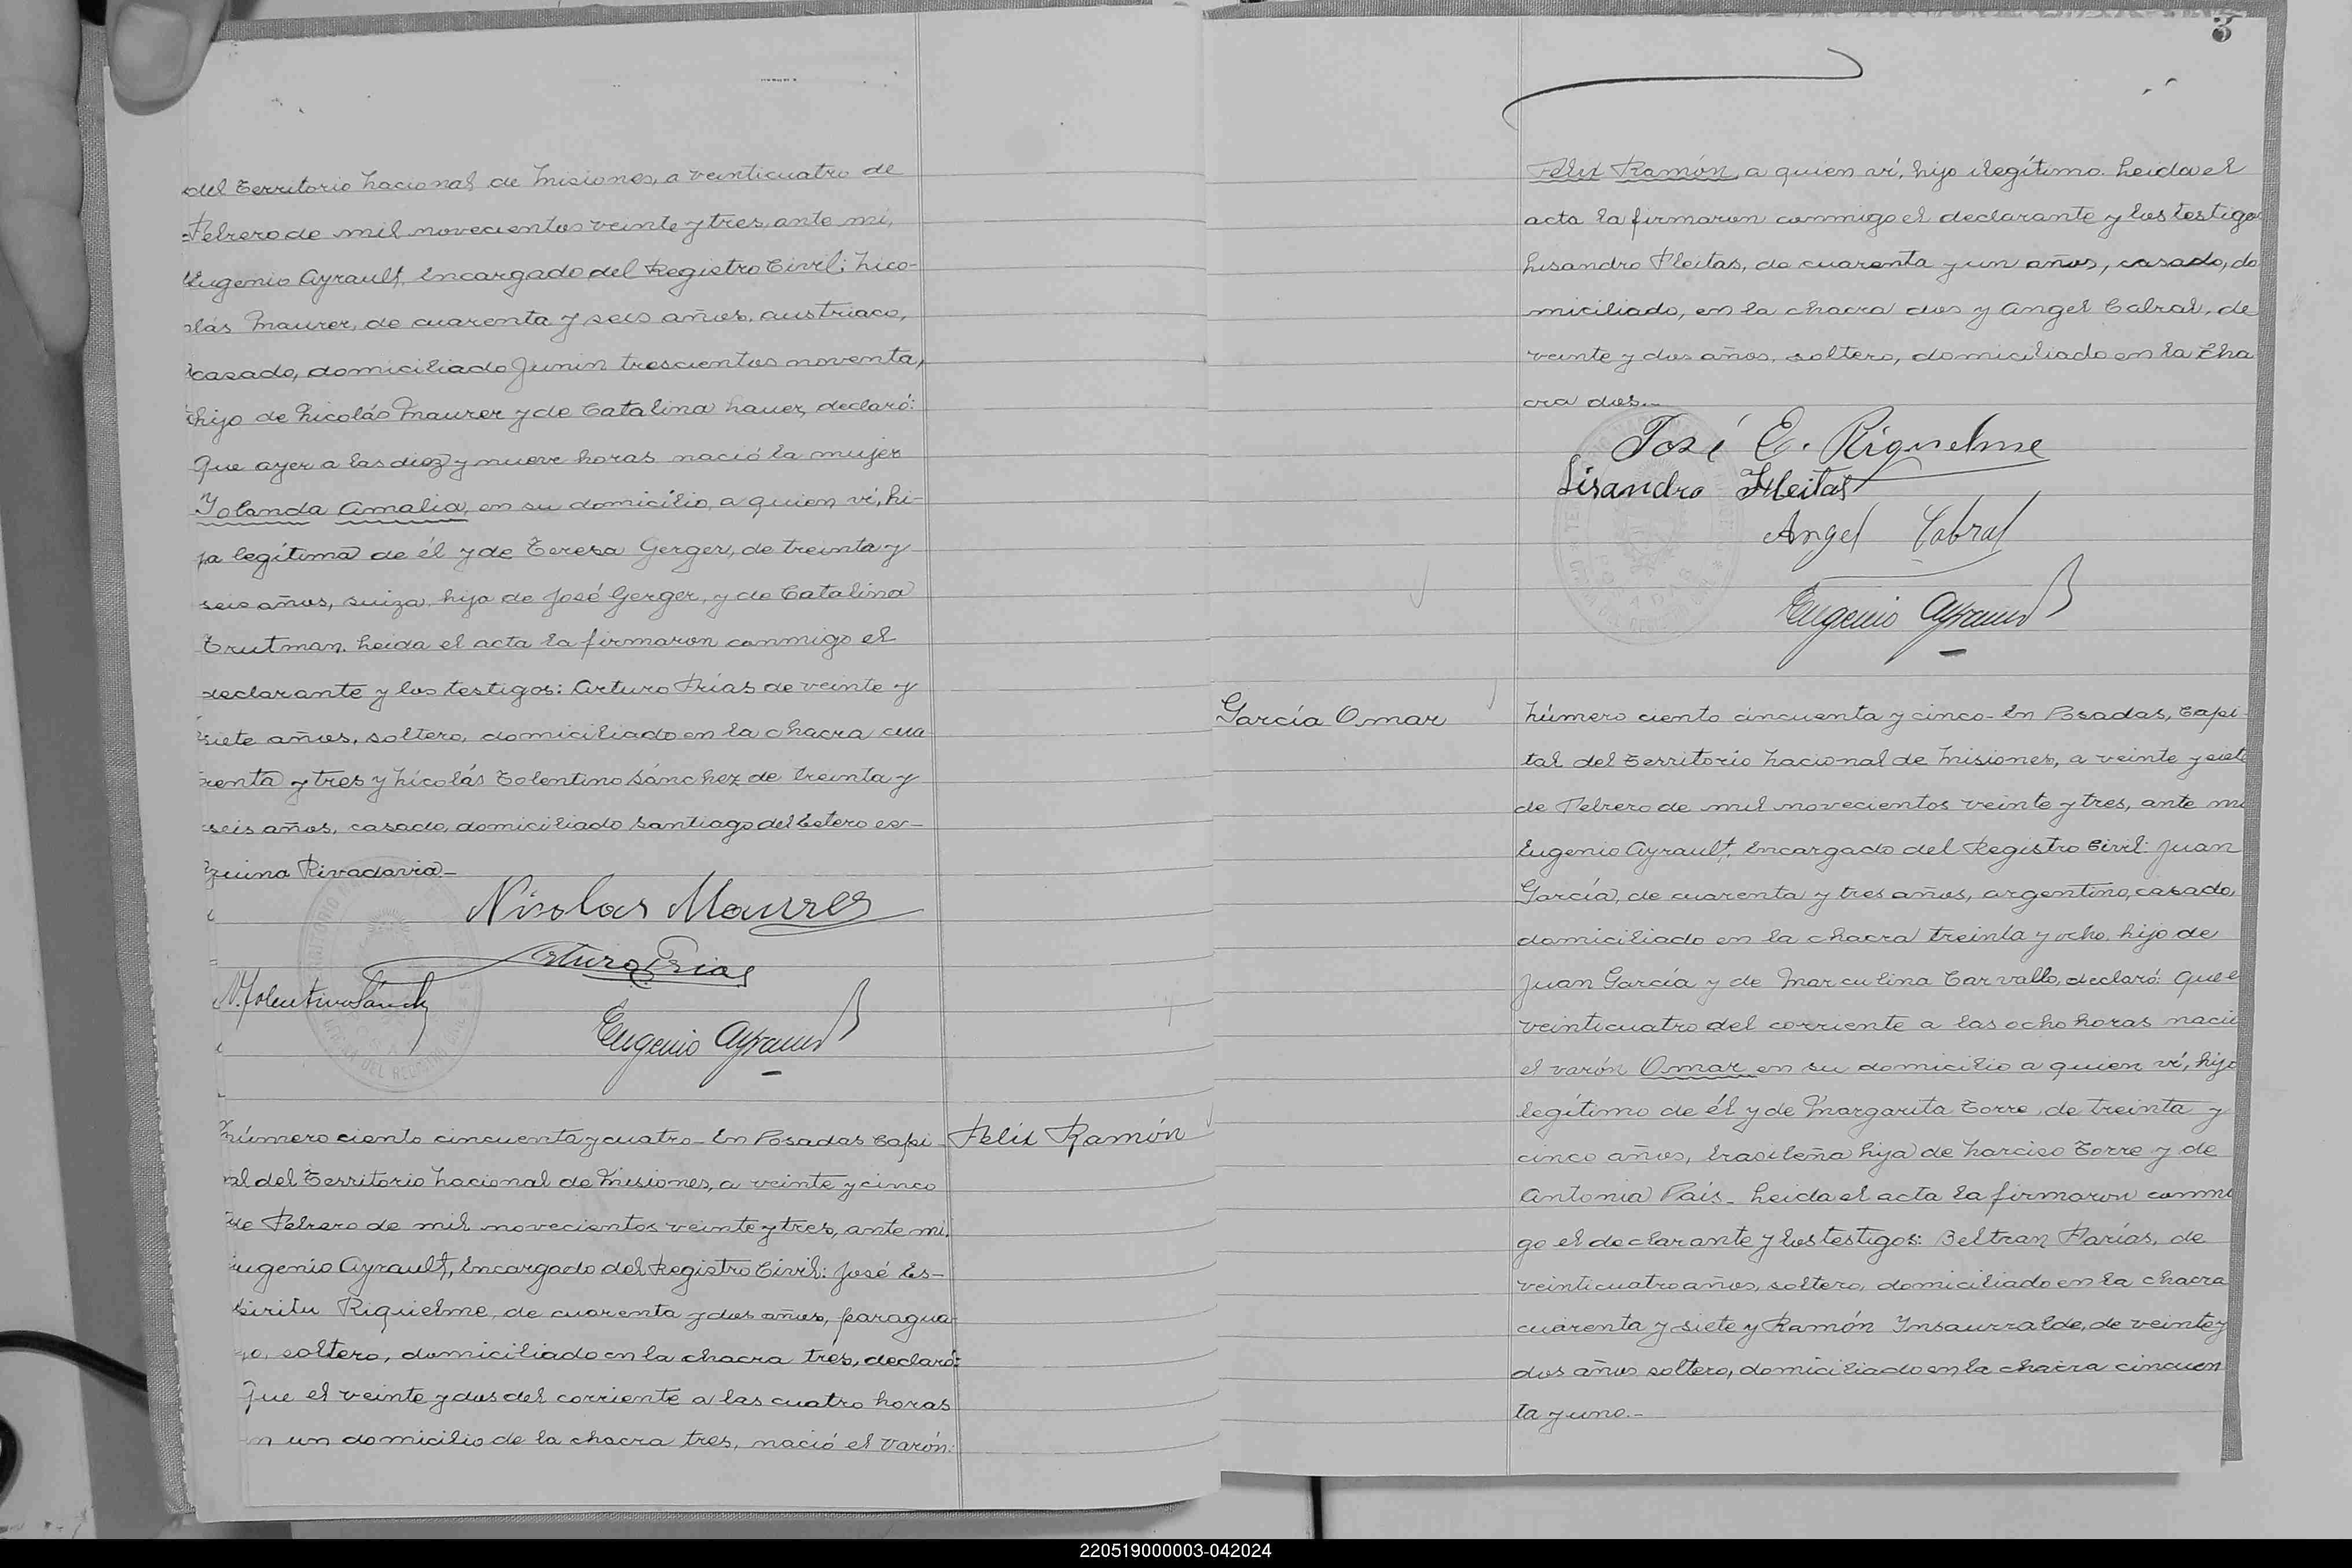 del Territorio Nacional de Misiones, a veinticuatro de
Febrero de mil novecientos veinte y tres, ante mi,
Eugenio Ayrault, Encargado del Registro Civil; Nico-
lás Maurer, de cuarenta y seis años, austriaco,
casado, domiciliado Junin trescientos noventa,
hijo de Nicolás Maurer y de Catalina Lauer, declaró:
Que ayer a las diez y nueve horas nació la mujer
Yolanda Amalia, en su domicilio, a quien ví, hi-
ja legítima de él y de Teresa Gerger, de treinta y
seis años, suiza, hija de José Gerger, y de Catalina
Trutman. Leida el acta la firmaron conmigo el
declarante y los testigos: Arturo Frías de veinte y
siete años, soltero, domiciliado en la chacra cua
renta y tres y Nicolás Tolentino Sánchez de treinta y
seis años, casado, domiciliado Santiago del Estero es-
quina Rivadavia.-
Nicolas Maurer
Arturo Frias
N. Tolentino Sánch
Eugenio Ayrault
Número ciento cincuenta y cuatro- En Posadas Capi
Felix Ramón
tal del Territorio Nacional de Misiones, a veinte y cinco
de Febrero de mil novecientos veinte y tres, ante mi,
Eugenio Ayrault, Encargado del Registro Civil: José Es-
píritu Riquielme, de cuarenta y dos años, paragua
yo, soltero, domiciliado en la chacra tres, declaró:
Que el veinte y dos del corriente a las cuatro horas
en un domicilio de la chacra tres, nació el varón:
3
Felix Ramón, a quien ví, hijo ilegítimo. Leida el
acta la firmaron conmigo el declarante y los testigos
Lisandro Fleitas, de cuarenta y un años, casado, do
miciliado, en la chacra dos y Angel Cabral, de
veinte y dos años, soltero, domiciliado en la cha
cra dos.-
José E. Riquelme
Lisandro Fleitas
Angel Cabral
Eugenio Ayrault
García Omar
Número ciento cincuenta y cinco- En Posadas, Capi
tal del Territorio Nacional de Misiones, a veinte y siete
de Febrero de mil novecientos veinte y tres, ante mi
Eugenio Ayrault, Encargado del Registro Civil: Juan
García, de cuarenta y tres años, argentino, casado,
domiciliado en la chacra treinta y ocho, hijo de
Juan García y de Marculina Carvallo, declaró: Que e
veinticuatro del corriente a las ocho horas nació
el varón Omar en su domicilio a quien ví, hijo
legítimo de él y de Margarita Torre, de treinta y
cinco años, brasileña hija de Narciso Torre y de
Antonia País- Leida el acta la firmaron conmi
go el declarante y los testigos: Beltran Farías, de
veinticuatro años, soltero, domiciliado en la chacra
cuarenta y siete y Ramón Insaurralde, de veinte y
dos años soltero, domiciliado en la chacra cincuen
ta y uno.-
220519000003-042024